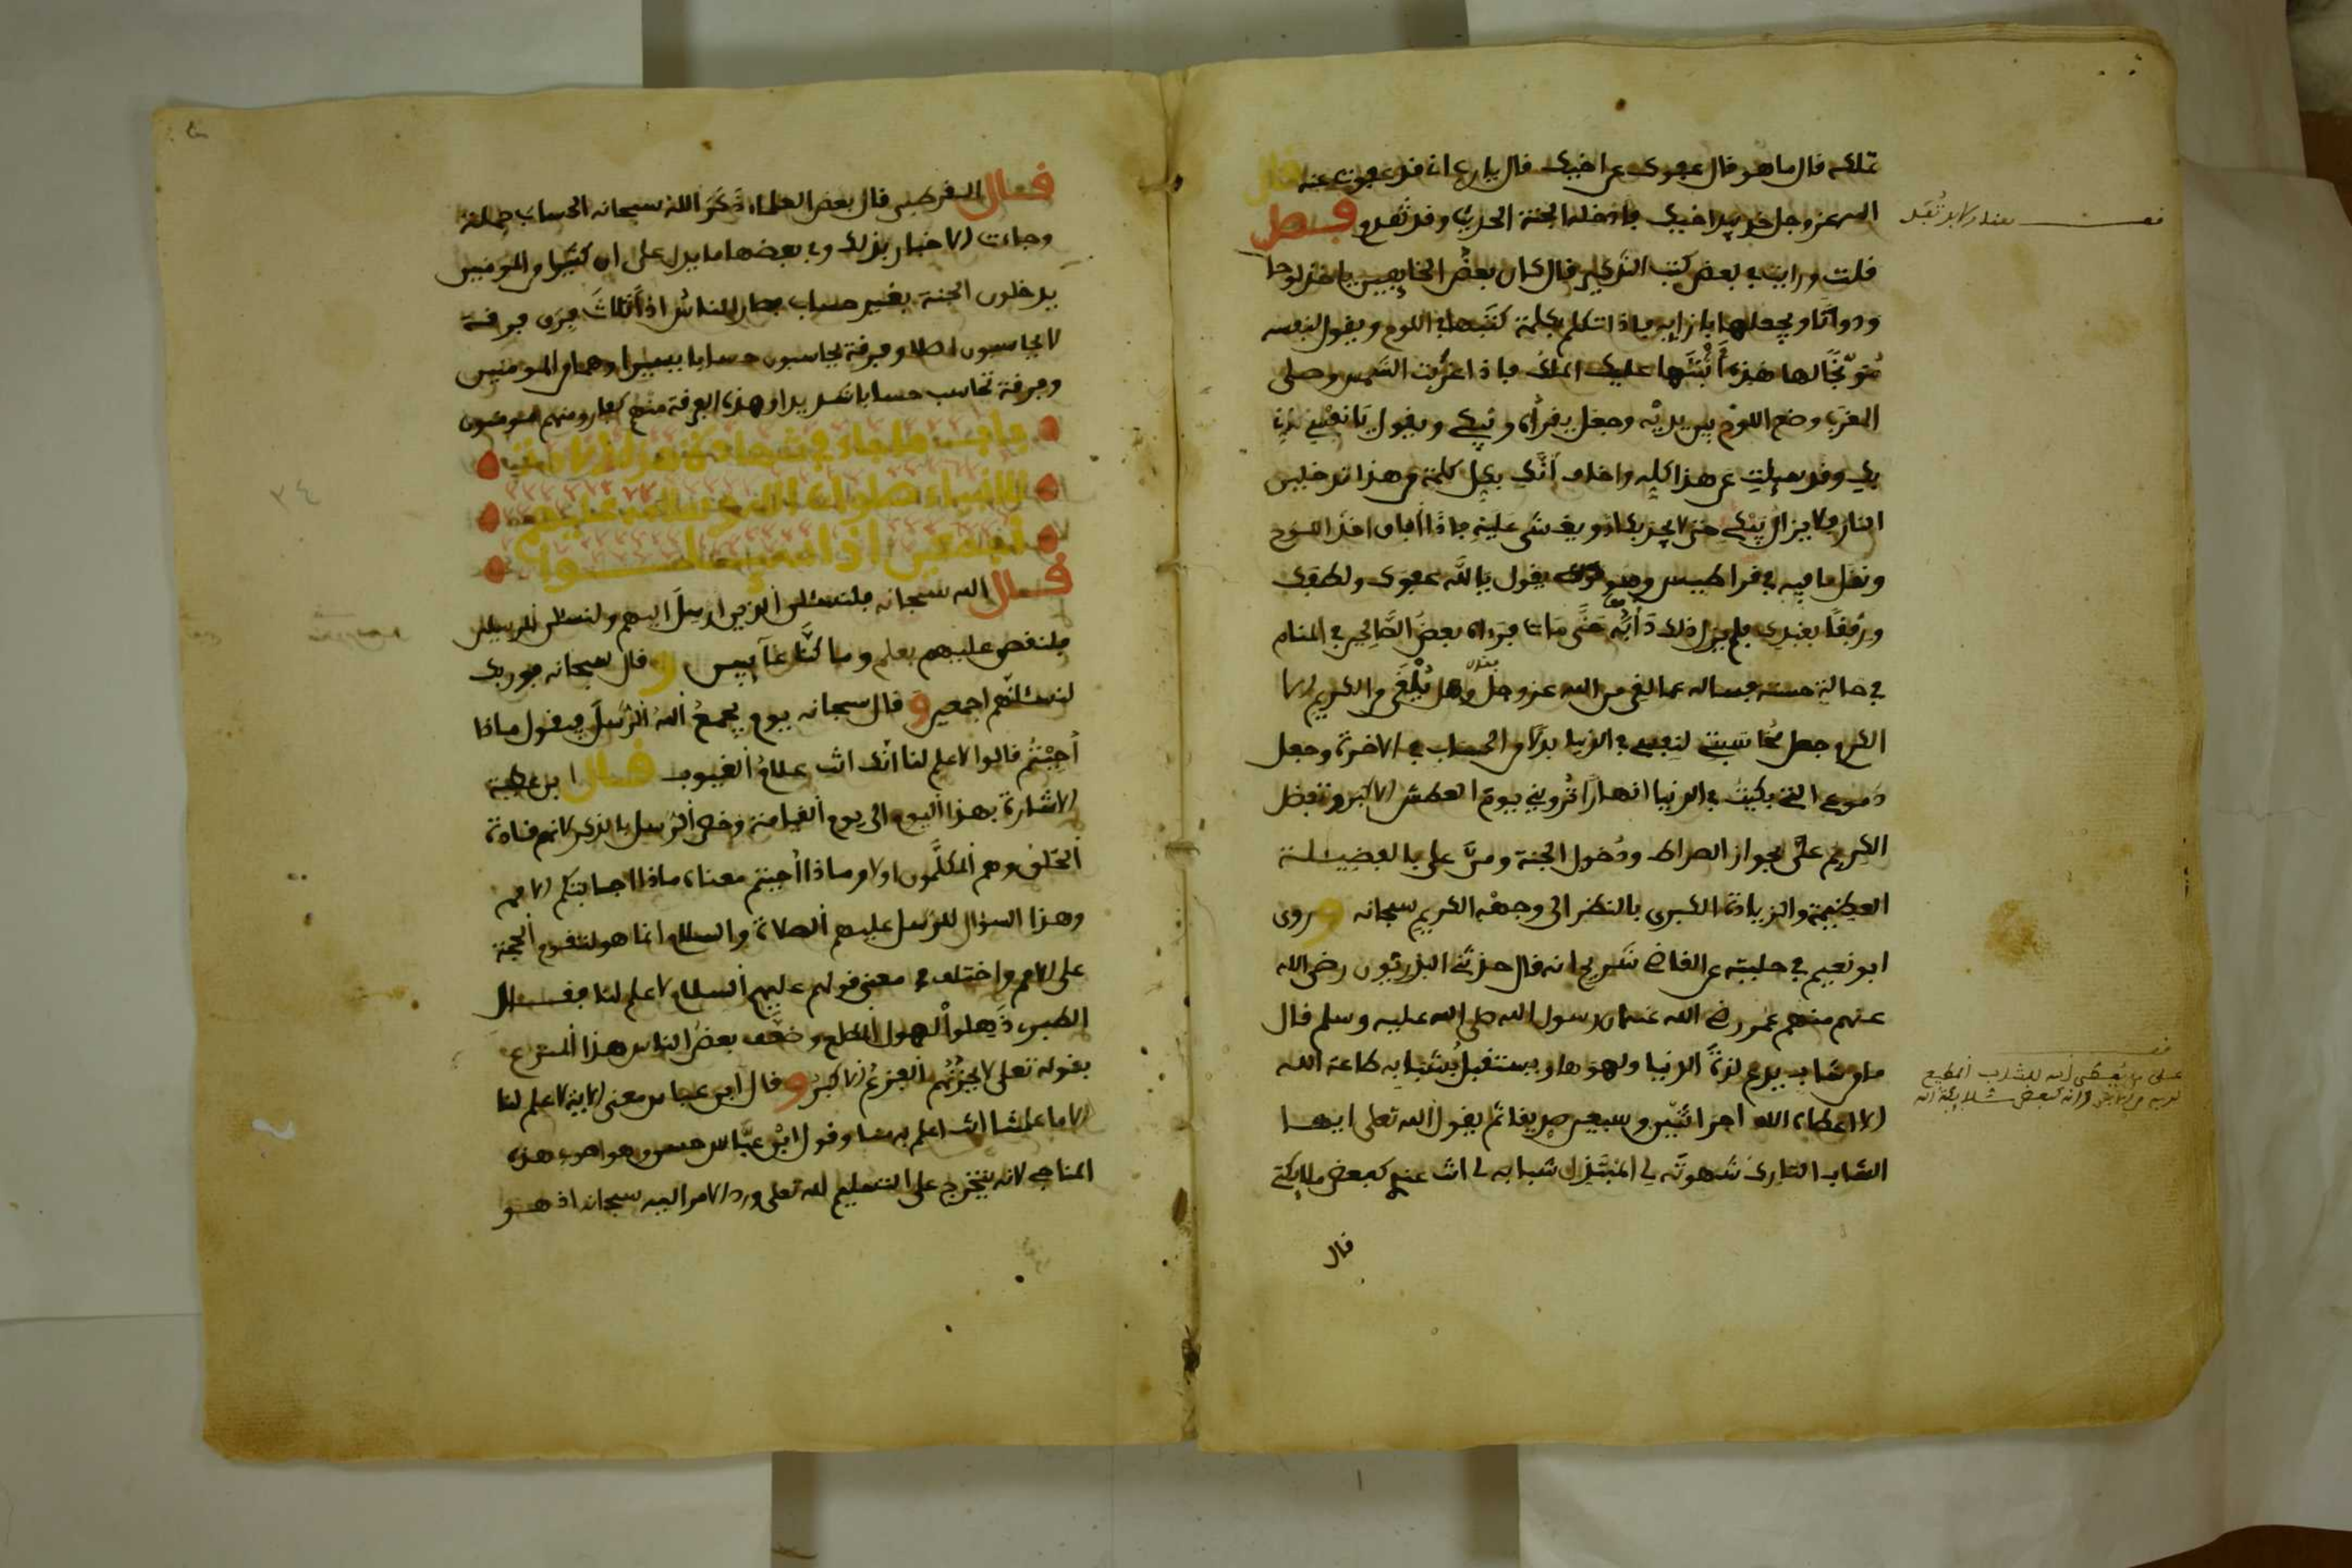 تملكه قال ما هو قال عفوك عن اخيك قال يا رب اني قد عفوت عنه قال
الله عز وجل خذ بيد اخيك فادخله الجنة الحديث وقد تقدم فصل
قلت ورايت في بعض كتب التذكير قال كان بعض الخايفين ياخذ لوحا
ودواتا ويجعلها بازايه فاذا تكلم بكلمة كتبها في اللوح ويقول لنفسه
موبخا لها هذه أثبتها عليك الملك فاذا غربت الشمس وصلى
المغرب وضع اللوح بين يديه وجعل يقرأه ويبكي ويقول يا نفسي
بك وقد سيلت عن هذا كله واخاف انك بكل كلمة من هذا تدخلين
النار فلا يزال يبكي حتى يغشى عليه فاذا افاق اخذ اللوح
ونقل ما فيه في قراطيس وهو يقول يا الله عفوك ولطفك
ورفقا بعبدك فلم يزل ذلك دأبه حتى مات فرءاه بعض الصالحين في المنام
في حالة حسنة فساله عما لقي من الله عز وجل وهل يلقى من الكريم الا
الكرم جعل محاسبتي لنفسي في الدنيا بدلا من الحساب في الاخرة وجعل
دموعي التي بكيت في الدنيا انهارا ترويني يوم العطش الاكبر وتفضل
الكريم علي بجواز الصراط ودخول الجنة ومن علي بالفضيلة
العظيمة والزيادة الكبرى بالنظر الى وجهه الكريم سبحانه وروى
ابو نعيم في حليته عن القاضي شريح انه قال حدثني البدريون رضي الله
عنهم منهم عمر رضي الله عنه ان رسول الله صلى الله عليه وسلم قال
ما من شاب يدع لذة الدنيا ولهوها ويستقبل بشبابه طاعة الله
الا اعطاه الله اجر اثنين وسبعين صديقا ثم يقول الله تعلى ايها
الشاب التارك شهوته لي المتبذل شبابه لي انت عندي كبعض ملايكتي
قال
قال القرطبي قال بعض العلماء ذكر الله سبحانه الحساب جملة
وجاءت الاخبار بذلك وفي بعضها ما يدل على ان كثيرا من المومنين
يدخلون الجنة بغير حساب فصار الناس اذا ثلاث فرق فرقة
لا يحاسبون اصلا وفرقة يحاسبون حسابا يسيرا وهما من المومنين
وفرقة تحاسب حسابا شديدا وهذه الفرقة منهم كفار ومنهم مومنون
باب ما جاء في
الانبياء صلوات الله وسلامه عليهم
اجمعين
قال الله سبحانه فلنسئلن الذين ارسل اليهم ولنسئلن المرسلين
فلنقصن عليهم بعلم وما كنا غايبين وقال سبحانه فوربك
لنسئلنهم اجمعين وقال سبحانه يوم يجمع الله الرسل فيقول ماذا
أجبتم قالوا لا علم لنا انك انت علام الغيوب قال ابن عطية
الاشارة بهذا اليوم الى يوم القيامة وخص الرسل بالذكر لانهم قادة
الخلق وهم المكلمون اولا وماذا أجبتم معناه ماذا اجابتكم الامم
وهذا السؤال للرسل عليهم الصلاة والسلام انما هو لتقوم الحجة
على الامم واختلف في معنى قولهم عليهم السلام لا علم لنا فقال
الطبري ذهلوا لهول المطلع وضعف بعض الناس هذا المنزع
بقوله تعلى لا يحزنهم الفزع الاكبر وقال ابن عباس معنى الاية لا علم لنا
الا ما علمتنا انت اعلم به منا وقول ابن عباس حسن وهو اصوب هذه
المناحي لانه يتخرج على التسليم لله تعلى ورد الامر اليه سبحانه اذ هو